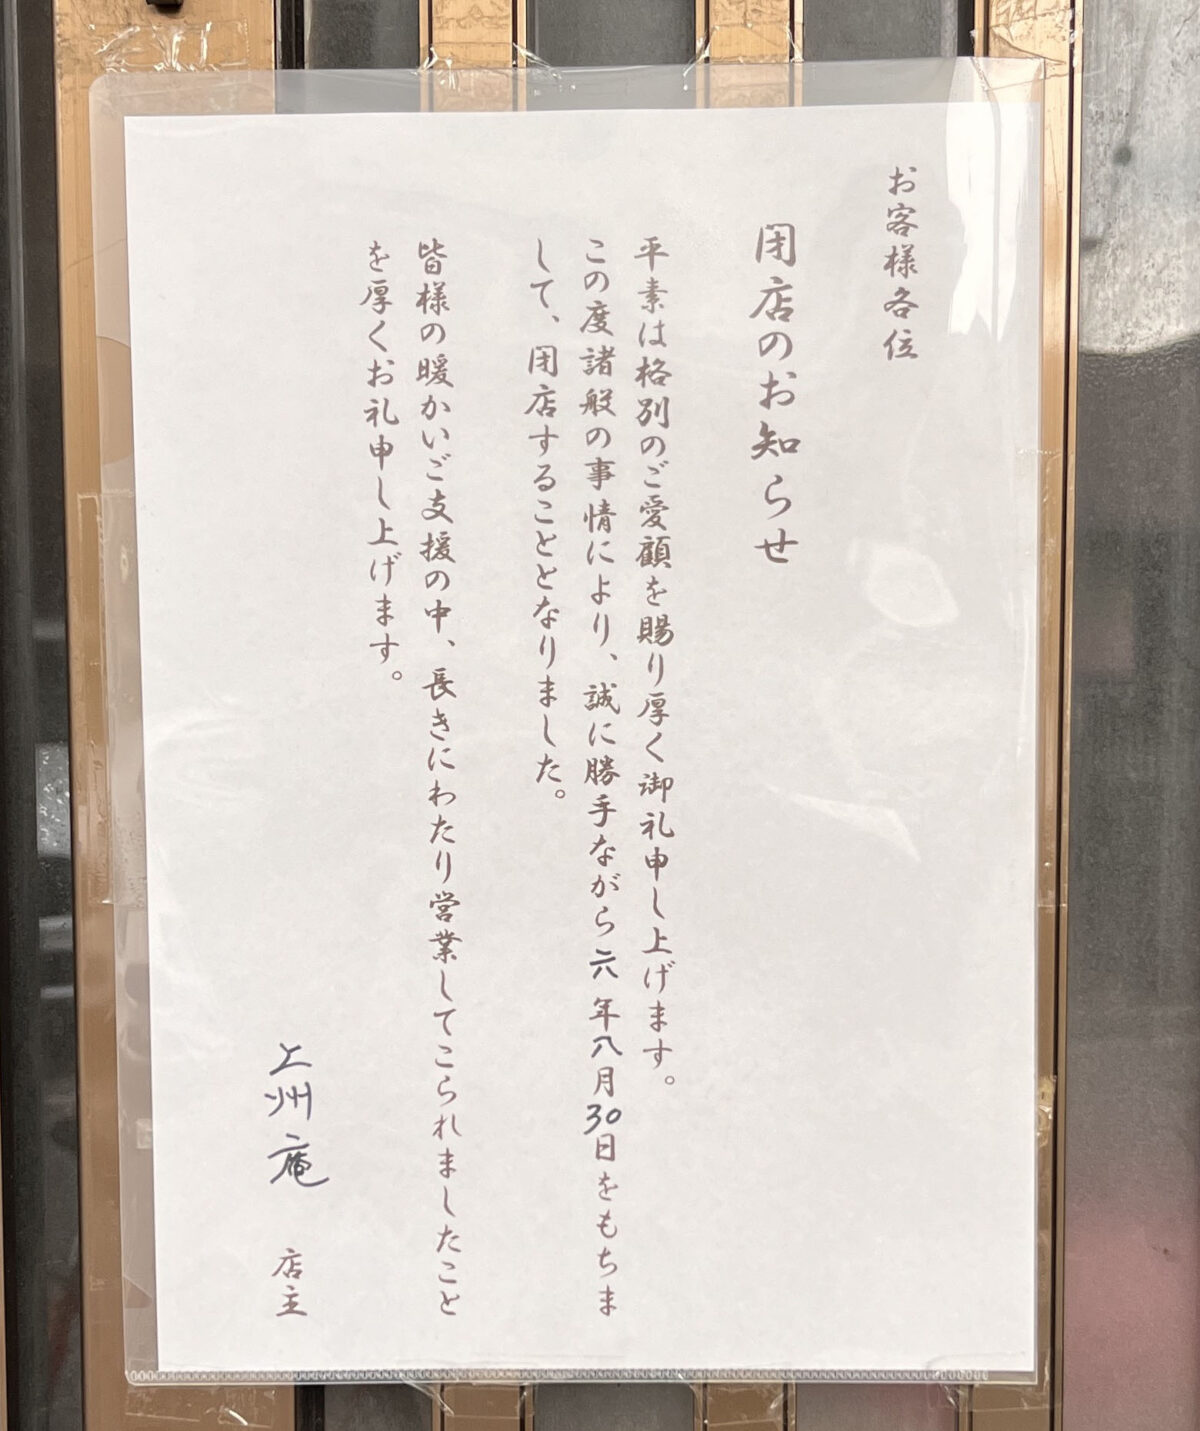 お客様各位
閉店のお知らせ
平素は格別のご愛顧を賜り厚く御礼申し上げます。
この度諸般の事情により、誠に勝手ながら六年八月30日をもちま
して、閉店することとなりました。
皆様の暖かいご支援の中、長きにわたり営業してこられましたこと
を厚くお礼申し上げます。
上州庵 店主